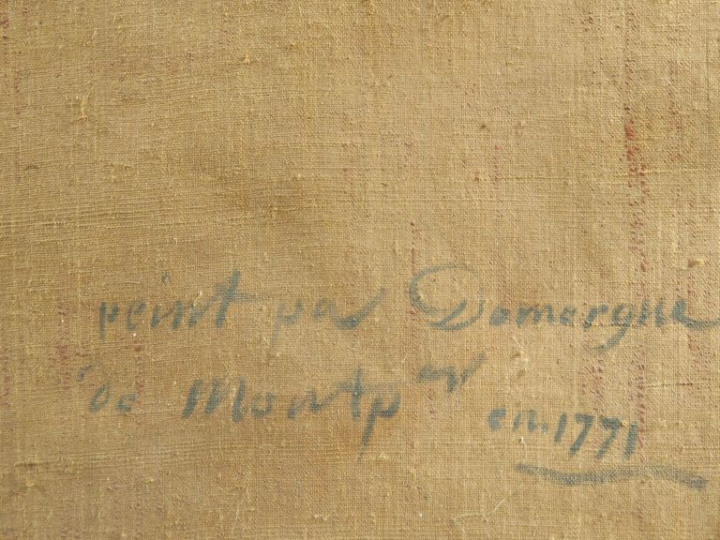 peint par Domergue
de Montp er en 1771